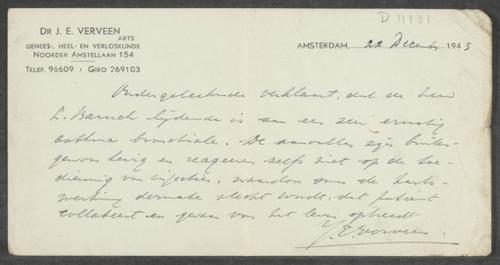 D 11101
DR J. E. VERVEEN
ARTS
GENEES-, HEEL- EN VERLOSKUNDE
NOORDER AMSTELLAAN 154
TELEF. 96609 / GIRO 269103
AMSTERDAM, 22 Decemb 1943
Ondergeteekende verklaart, dat de heer
L. Baruch lijdende is aan een zeer ernstig
asthma bronchiale. De aanvallen zijn buiten-
gewoon hevig en reageeren zelfs niet op de toe-
diening van injecties, waardoor soms de harts-
werking dermate slecht wordt, dat patient
collabeert en gevaar voor het leven optreedt
J. E. Verveen.